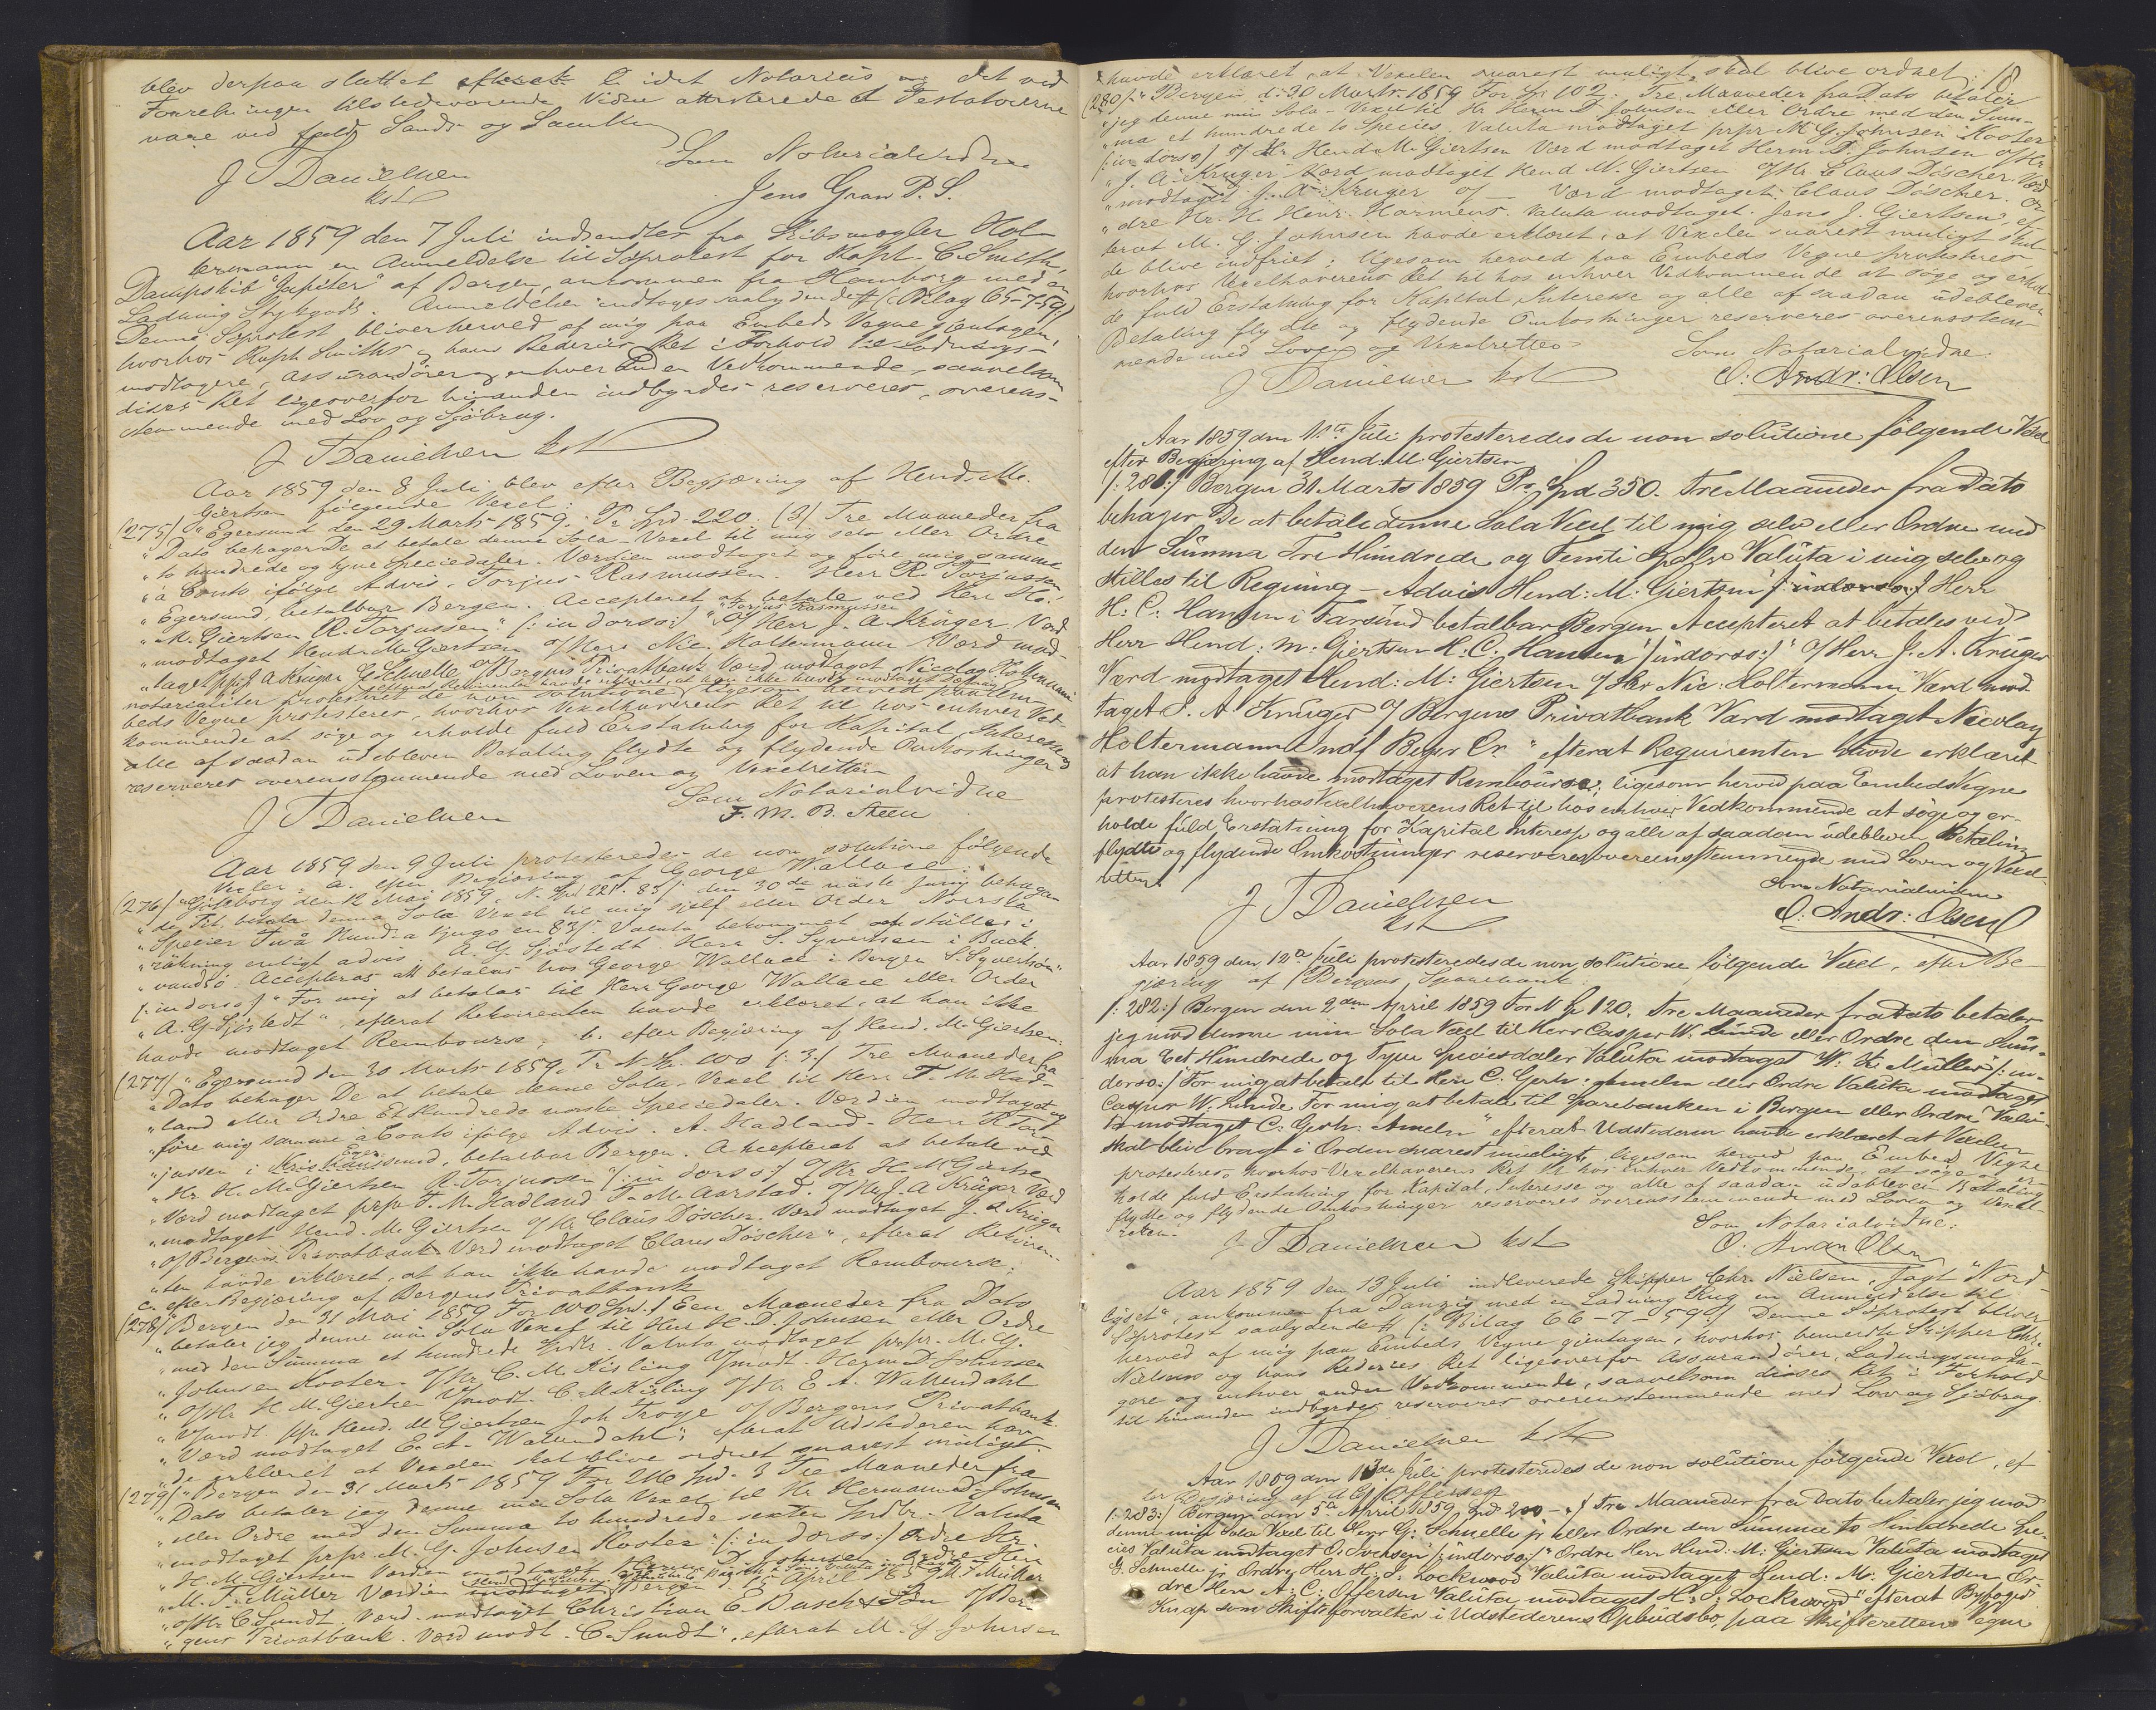 blev derpaa sluttet efterat idet Notarius og det ved
Forretningen tilstedeværende Vidne attesterede at Testatorerne
vare ved fuld Sands og Samling
Som Notarialvidne
J T Danielsen
kst
Jens Gran P. S.
Aar 1859 den 7 Juli indsendtes fra Skibsmægler Hol-
termann en Anmeldelse til Söprotest for Kapt. C. Smith,
Dampskib "Jupiter" af Bergen, ankommen fra Hamborg med en
Ladning Stykgods. Anmeldelsen indtages saalydende # (: Bilag 65-7-59:)
Denne Söprotest bliver herved af mig paa Embeds Vegne gjentagen,
hvorhos Kapt. Smiths og hans Rederies Ret i Forhold til Ladnings-
modtagere, Assurandörer og enhver Anden Vedkommende, saavelsom
disses Ret ligeoverfor hinanden indbyrdes reserveres, overens-
stemmende med Lov og Sjöbrug.
J T Danielsen kst
Aar 1859 den 8 Juli blev efter Begjæring af Hend. M.
Giertsen følgende Vexel:
(275) "Egersund den 29 Marts 1859. Pr Spd. 220. (3) Tre Maaneder fra
"Dato behager De at betale denne Sola-Vexel til mig selv eller Ordre
"to hundrede og tyve Speciedaler. Værdien modtaget og före mig samme
"à Conto ifölge Advis. Torjus Rasmussen. Herr R. Torjussen
"Egersund, betalbar Bergen. Accepteret at betale ved Herr H.
"M. Giertsen R. Torjussen." (: in dorso:) "Torjus Rasmussen "O/ Herr J. A. Krüger. Værd
"modtaget Hendr. M. Giertsen O/ Herr Nic. Holtermann Værd mod-
"taget ppr J. A. Krüger G Schnelle O/ Bergens Privatbank Værd modtaget Nicolay Holtermann
efterat Rekvirenten havde erklæret, at han ikke havde modtaget Rembours
notarialiter protesteret de non solutione, ligesom herved paa Em-
beds Vegne protesteres, hvorhos Vexelhaverens Ret til hos enhver Ved-
kommende at søge og erholde fuld Erstatning for Kapital, Interesse og
alle af saadan udebleven Betaling flydte og flydende Omkostninger
reserveres overensstemmende med Loven og Vexelretten
Som Notarialvidne
J T Danielsen
F. M. B. Steen
Aar 1859 den 9 Juli protesteredes de non solutione følgende
Vexler: a. efter Begjæring af George Wallace:
(276) "Göteborg den 12 Maj 1859. N. Spd 221. 83/. den 30de näste Juny behagar
"de Tit. betala denna Sola Vexel til mig sjelf eller Order Norrska
"Specier Twå Hundra tjugo en 83/. Valuta bekommet och ställes i
"räkning enligt advis A. G. Sjöstedt. Herr S. Syvertsen i Buck
"vandsö. Accepteras att betalas hos George Wallace i Bergen S. Syvertsen"
(: in dorso:) "For mig at betalas til Herr George Wallace eller Order
"A. G. Sjöstedt", efterat Rekvirenten havde erklæret, at han ikke
havde modtaget Rembours; b. efter Begjæring af Hend. M. Giertsen:
(277) "Egersund den 30 Marts 1859. Pr N. Sp. 100 (: 3:) Tre Maaneder fra
"Dato behager De at betale denne Sola-Vexel til Herr T. M. Had-
"land eller Ordre Et Hundrede norske Speciedaler. Værdien modtaget og
"före mig samme à Conto ifölge Advis. A. Hadland. Herr R. Tor-
"jussen i Egersund, betalbar Bergen. Accepteret at betale ved
"Hr. H. M. Giertsen R. Torjussen" (: in dorso:) O/ Hr. H. M. Giertse
"Værd modtaget prpr T. M. Hadland T. M. Aarstad. O/ Hr. J. A. Krüger Værd
"modtaget Hend. M. Giertsen O/ Hr Claus Döscher. Værd modtaget J. A. Krüger
"O/ Bergens Privatbank Værd modtaget Claus Döscher", efterat Rekviren-
"ten havde erklæret, at han ikke havde modtaget Rembours;
c. efter Begjæring af Bergens Privatbank
(278) "Bergen den 31 Mai 1859 For 100 Spd. / Een Maaneder fra Dato
"betaler jeg denne min Sola Vexel til Herr H. D. Johnsen eller Ordre
"med den Summa et hundrede Spdlr. Valuta modtaget prpr. M. G.
"Johnsen Koster O/ Hr C. M. Kisling Vmodt. Herm D. Johnsen
"O/ Hr H. M. Giertsen Vmodt. C. M. Kisling O/ Hr E. A. Wallendahl
"Vmodt. ppr. Hend. M Giertsen Joh Troye O/ Bergens Privatbank
"Værd modtaget E. A. Wallendahl", efterat Udstederen hav-
"de erklæret at Vexelen skal blive ordnet snarest muligst.
(279) "Bergen den 31 Marts 1859 For 216 Spd. 3 Tre Maaneder fra
"Dato betaler jeg denne min Sola Vexel til Hr Herman D. Johnsen
"eller Ordre med den Summa to hundrede sexten Spdlr. Valuta
"modtaget prpr. M. G. Johnsen Koster" (: in dorso:) Ordre Hr.
"H. M. Giertsen Værdien modtaget Herm D. Johnsen Ordre Herr
"M. T. Müller Værdien modtaget Bergen d. 12 April 1859 M. T. Müller
"O/ Hr. C. Sundt. Værd modtaget Christian E. Dasch & Sön O/ Ber-
"gens Privatbank. Værd modt. C. Sundt", efterat M. G. Johnsen
18
havde erklæret, at Vexelen snarest muligt, skal blive ordnet;
(280) "Bergen d: 30 Marts 1859 For Sp. 102. Tre Maaneder fra Dato betaler
"jeg denne min Sola-Vexel til Hr Herm D Johnsen eller Ordre med den Sum-
"ma et hundrede to Species. Valuta modtaget prpr M. G. Johnsen Koster
(: in dorso:) O/ Hr Hend. M. Giertsen Værd modtaget Herm D. Johnsen O/ Hr
"J. A. Krüger Værd modtaget Hend M. Giertsen O/ Hr Claus Döscher Værd
"modtaget J. A. Krüger O/ — Værd modtaget Claus Döscher. Or-
"dre Hr. H. Henr. Harmens. Valuta modtaget. Jens J. Giertsen", ef-
terat M. G. Johnsen havde erklæret, at Vexelen snarest muligt skul-
de blive indfriet; ligesom herved paa Embeds Vegne protesteres
hvorhos Vexelhaverens Ret til hos enhver Vedkommende at søge og erhol-
de fuld Erstatning for Kapital, Interesse og alle af saadan udebleven
Betaling flydte og flydende Omkostninger reserveres overensstem-
mende med Loven og Vexelretten
Som Notarialvidne:
J T Danielsen kst
O: Andr: Olsen
Aar 1859 den 11te Juli protesteredes de non solutione følgende Vexel
efter Begjæring af Hend: M. Giertsen
/: 281:/ Bergen 31 Marts 1859 Pr Spd 350. Tre Maaneder fra Dato
behager De at betale denne Sola Vexel til mig selv eller Ordre med
den Summa Tre Hundrede og Femti Spdlr Valuta i mig selv og
stilles til Regning – Advis Hend: M: Giertsen /: indorso:/ Herr
H: C: Hansen i Farsund betalbar Bergen Accepteret at betales ved
Herr Hend: M: Giertsen H. C. Hansen" /: indorso:/ "O/ Herr J. A. Krüger
Værd modtaget Hend: M: Giertsen O/ Hr Nic: Holtermann Værd mod-
taget J. A Krüger O/ Bergens Privatbank Værd modtaget Nicolay
Holtermann" efterat Requirenten havde erklæret
at han ikke havde modtaget Rembourse; ligesom herved paa Embeds Vegne
protesteres hvorhos Vexelhaverens Ret til hos enhver Vedkommende at søge og er-
holde fuld Erstatning for Kapital Interesse og alle af saadan udebleven Betaling
flydte og flydende Omkostninger reserveres overeensstemmende med Loven og Vexel-
retten.
Som Notarialvidne
J T Danielsen
kst
O. Andr: Olsen
Aar 1859 den 12te Juli protesteredes de non solutione følgende Vexel, efter Be-
gjæring af Bergens Sparebank:
/: 282:/ Bergen den 9den April 1859 For N Sp 120. Tre Maaneder fra Dato betaler
jeg mod denne min Sola Vexel til Herr Casper W. Lunde eller Ordre den Sum-
ma Eet Hundrede og Tyve Speciesdaler Valuta modtaget W: Fr Müller" /: in-
dorso:/ "For mig at betale til Herr C. Gerh: Ameln eller Ordre Valuta modtaget
Casper W. Lunde. For mig at betale til Sparebanken i Bergen eller Ordre Valu-
ta modtaget C: Gerh: Ameln" efterat Udstederen havde erklæret at Vexelen
skal blive bragt i Orden snarest mueligt, ligesom herved paa Embeds Vegne
protesteres, hvorhos Vexelhaverens Ret til hos enhver Vedkommende at søge og er-
holde fuld Erstatning for Kapital, Interesse og alle af saadan udebleven Betaling
flydte og flydende Omkostninger reserveres overensstemmende med Loven og Vexel-
retten.
Som Notarialvidne:
J T Danielsen kst
O. Andr Olsen
Aar 1859 den 13 Juli indleverede Skipper Chr. Nielsen, Jagt "Nord-
lyset", ankommen fra Danzig med en Ladning Rug en Anmeldelse til
Söprotest saalydende # (: Bilag 66-7-59:) Denne Söprotest bliver
herved af mig paa Embeds Vegne gjentagen, hvorhos bemeldte Skipper Chr.
Nielsens og hans Rederies Ret ligeoverfor Assurandörer, Ladningsmodta-
gere og enhver anden Vedkommende, saavelsom disses Ret i Forhold
til hinanden indbyrdes reserveres overensstemmende med Lov og Sjöbrug
J T Danielsen kst
Aar 1859 den 13de Juli protesteredes de non solutione følgende Vexel, ef-
ter Begjæring af A C Offersen
/: 283:/ Bergen den 5te April 1859 Spd 200 – / Tre Maaneder fra Dato betaler jeg mod
denne min Sola Vexel til Herr G: Schnelle jr eller Ordre den Summa to Hundrede Spe-
cies Valuta modtaget O: Iversen" /: indorso:/ "Ordre Herr Hend: M: Giertsen Valuta modtaget
G. Schnelle jr Ordre Herr H: S: Lockwood Valuta modtaget Hend: M: Giertsen Or-
dre Herr A: C: Offersen Valuta modtaget H: S: Lockwood" efterat Byfoged
Knap som Skifteforvalter i Udstederens Opbudsbo, paa Skifterettens egne